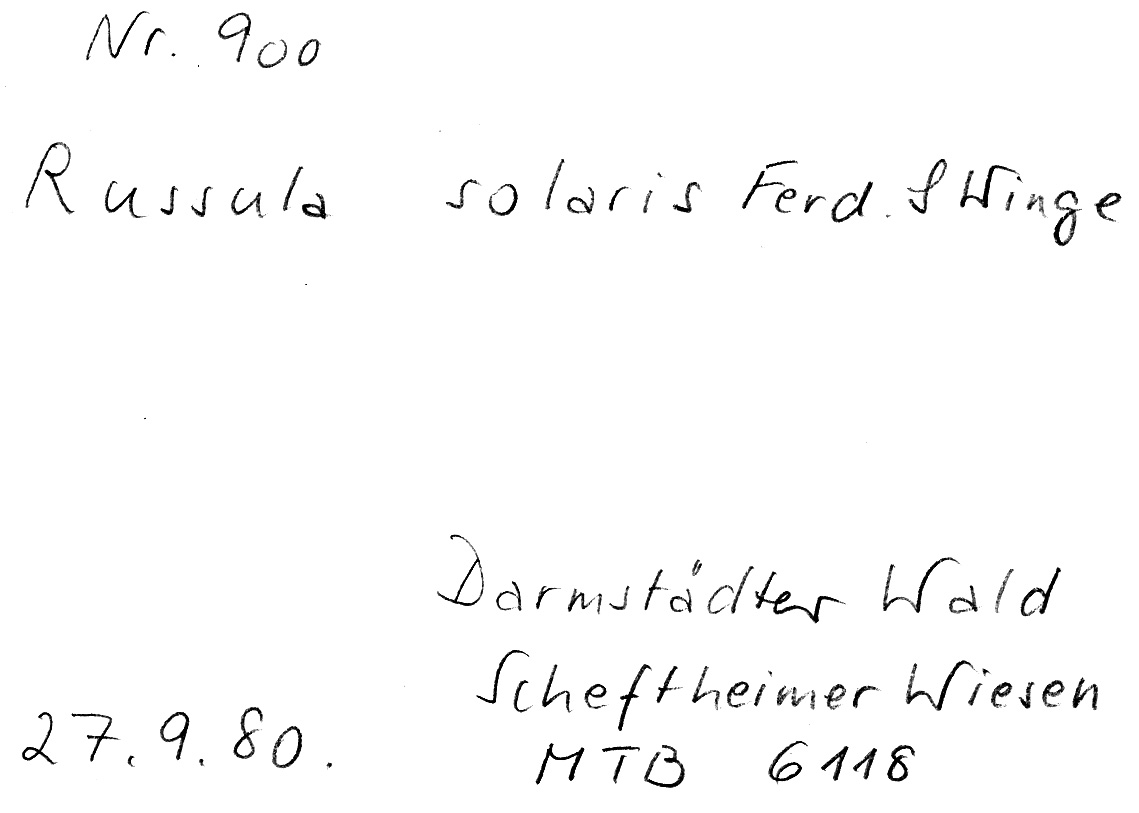 Nr. 900
Russula solaris Ferd. & Winge
Darmstädter Wald
Scheftheimer Wiesen
27.9.80.
MTB 6118